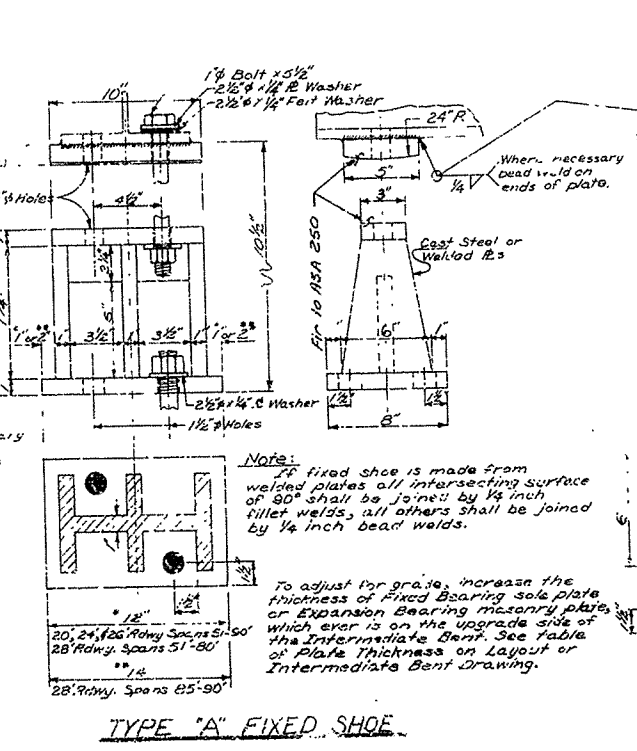 1"φ Bolt x 5½"
2½"φ x ¼" ℞ Washer
2½"φ x ¼" Felt Washer
10"
24" R.
5"
¼
Where necessary
bead weld on
ends of plate.
"φ Holes
4½"
3"
10½"
Fin to ASA 250
Cast Steel or
Welded ℞s
2¼"
5"
1" or 2"
**
1"
3½"
1"
3½"
1"
*1" or 2"**
1"
6"
1"
1½"
1½"
8"
2½"φ x ¼" ℞ Washer
1½"φ Holes
ary
Note:
If fixed shoe is made from
welded plates all intersecting surface
of 90° shall be joined by ¼ inch
fillet welds, all others shall be joined
by ¼ inch bead welds.
1"
1½"
1½"
To adjust for grade, increase the
thickness of Fixed Bearing sole plate
or Expansion Bearing masonry plate,
which ever is on the upgrade side of
the Intermediate Bent. See table
of Plate Thickness on Layout or
Intermediate Bent Drawing.
*12"
20', 24', & 26' Rdwy Spans 51-90'
28' Rdwy. Spans 51-80'
**
14
28' Rdwy. Spans 85-90'
TYPE "A" FIXED SHOE